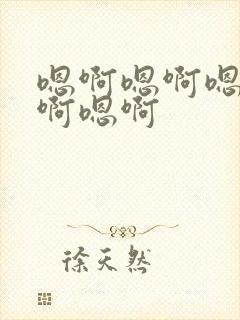 嗯啊嗯啊嗯
啊嗯啊
徐天然